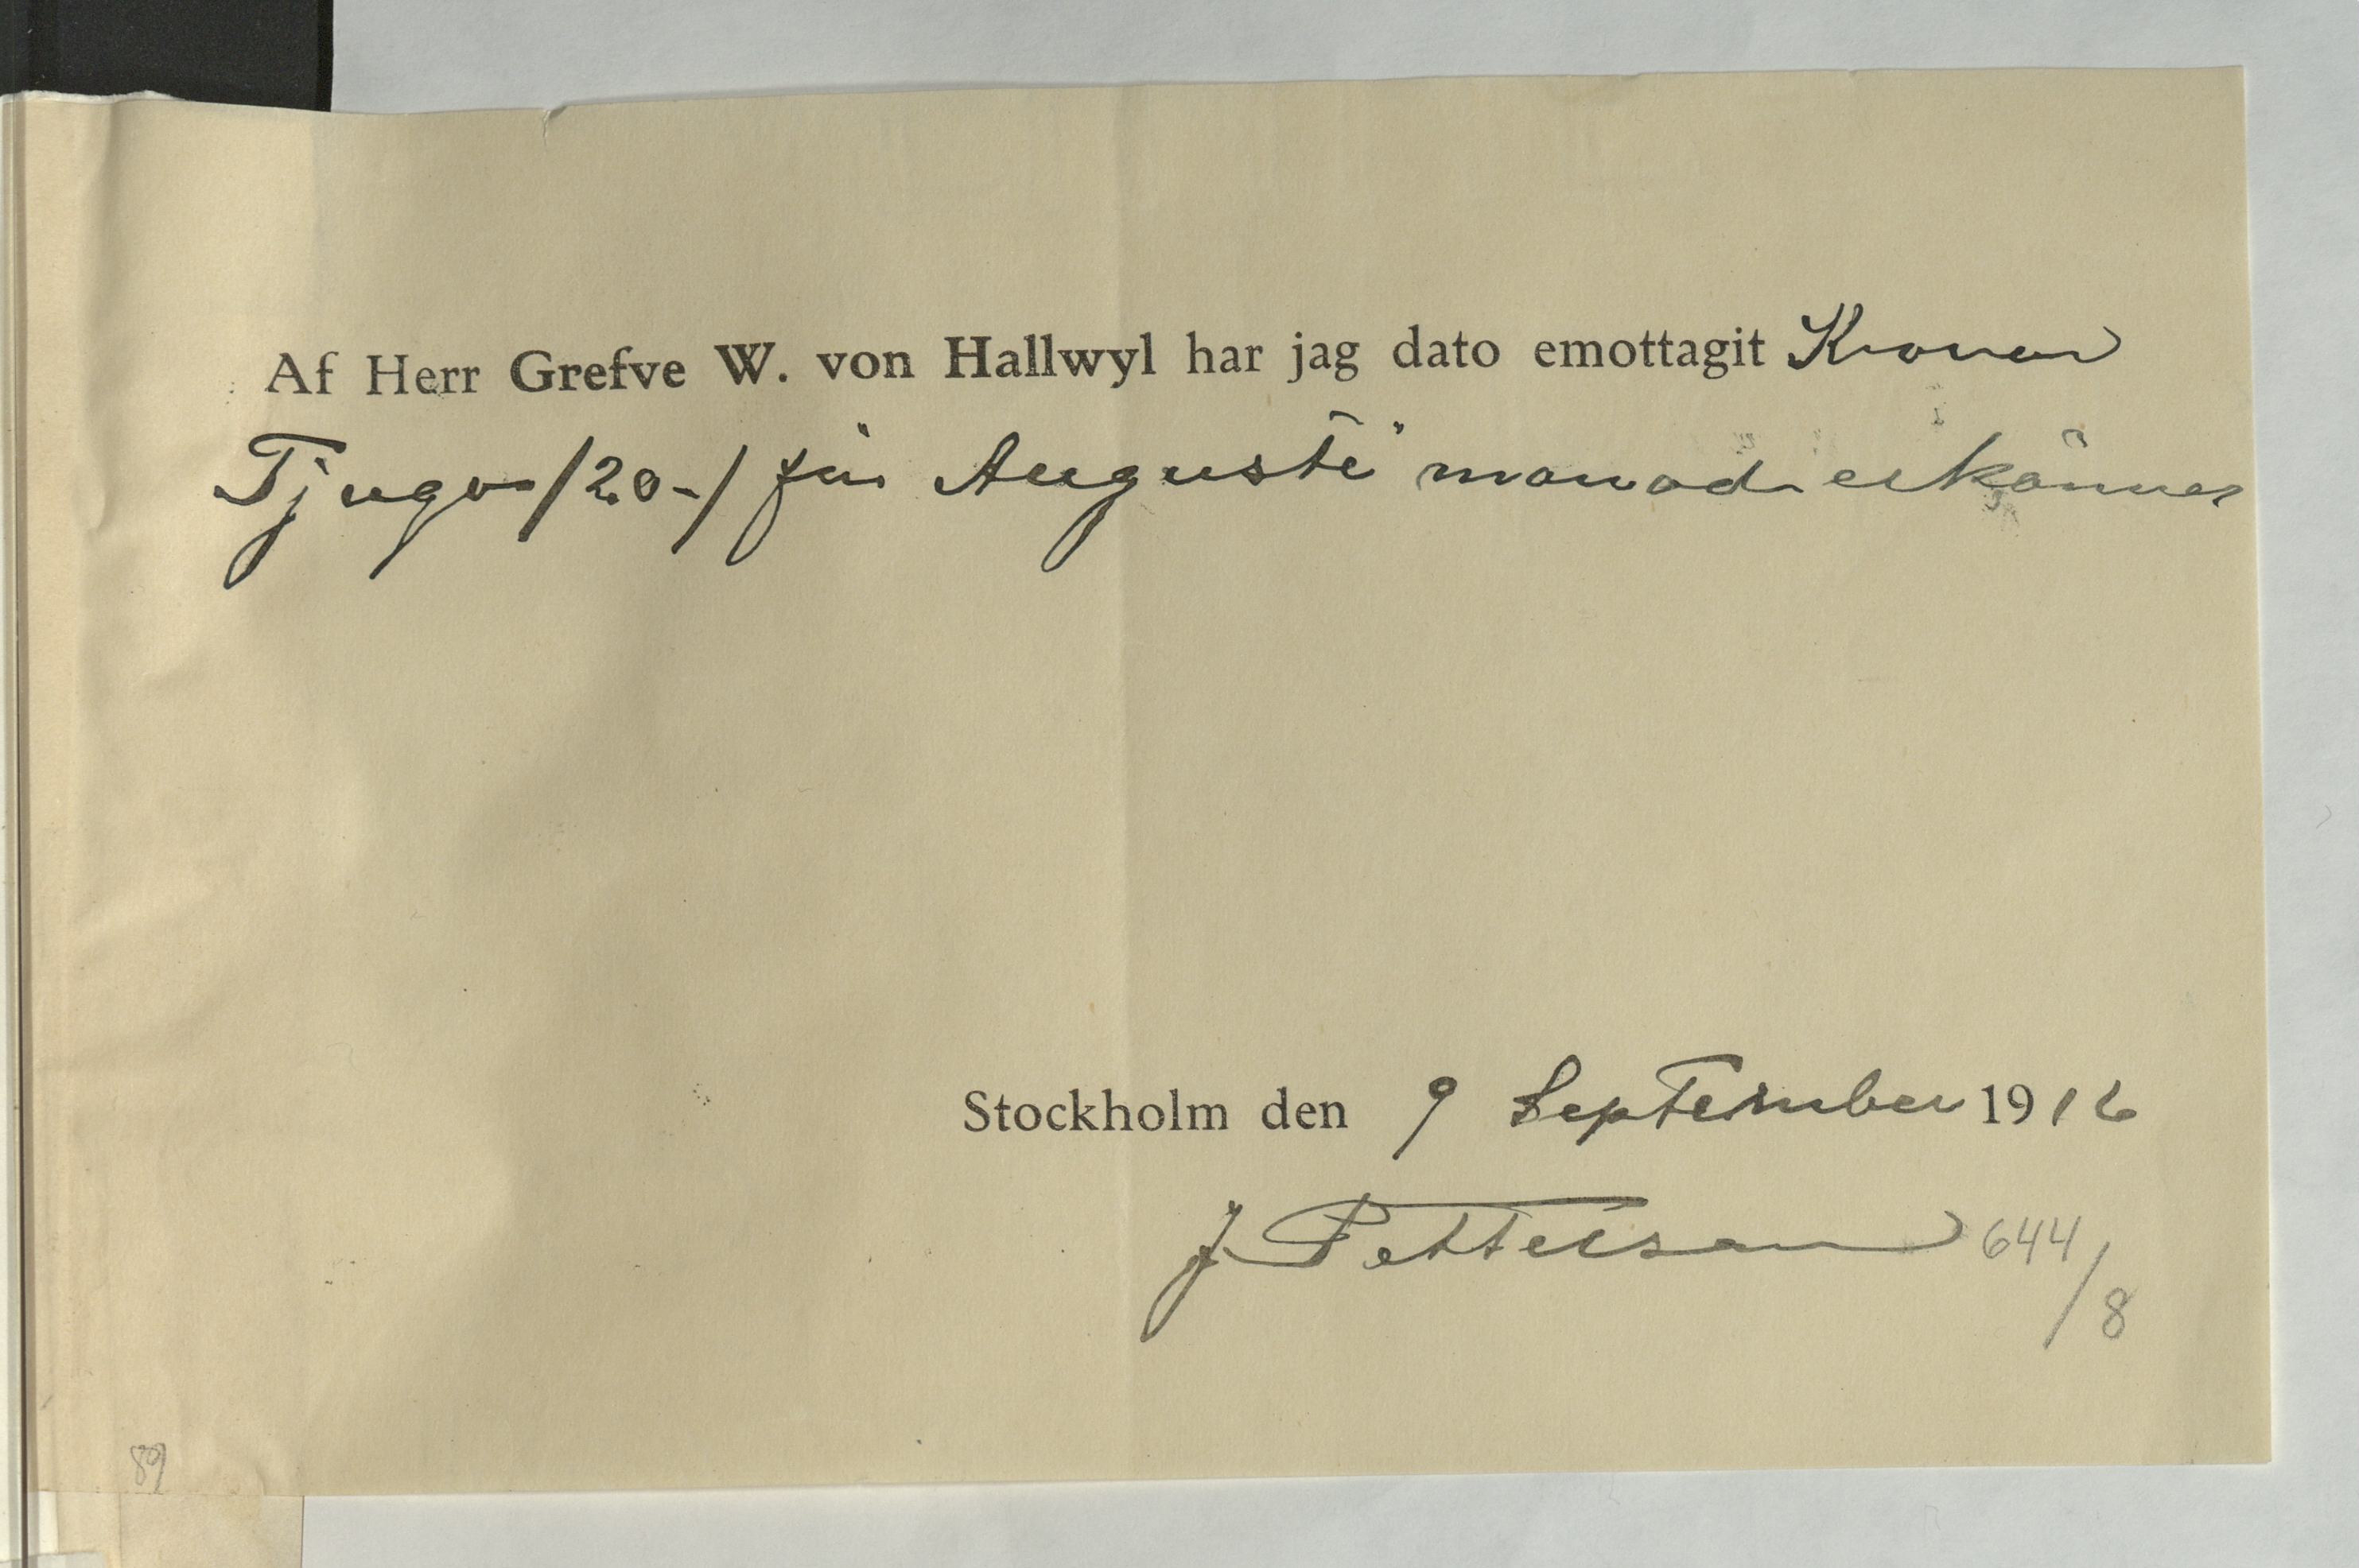 Af Herr Grefve W. von Hallwyl har jag dato emottagit Kronor
Tjugo /20-/ för Augusti månad erkännes
Stockholm den 9 September 1916
J Petterson 644/8
89